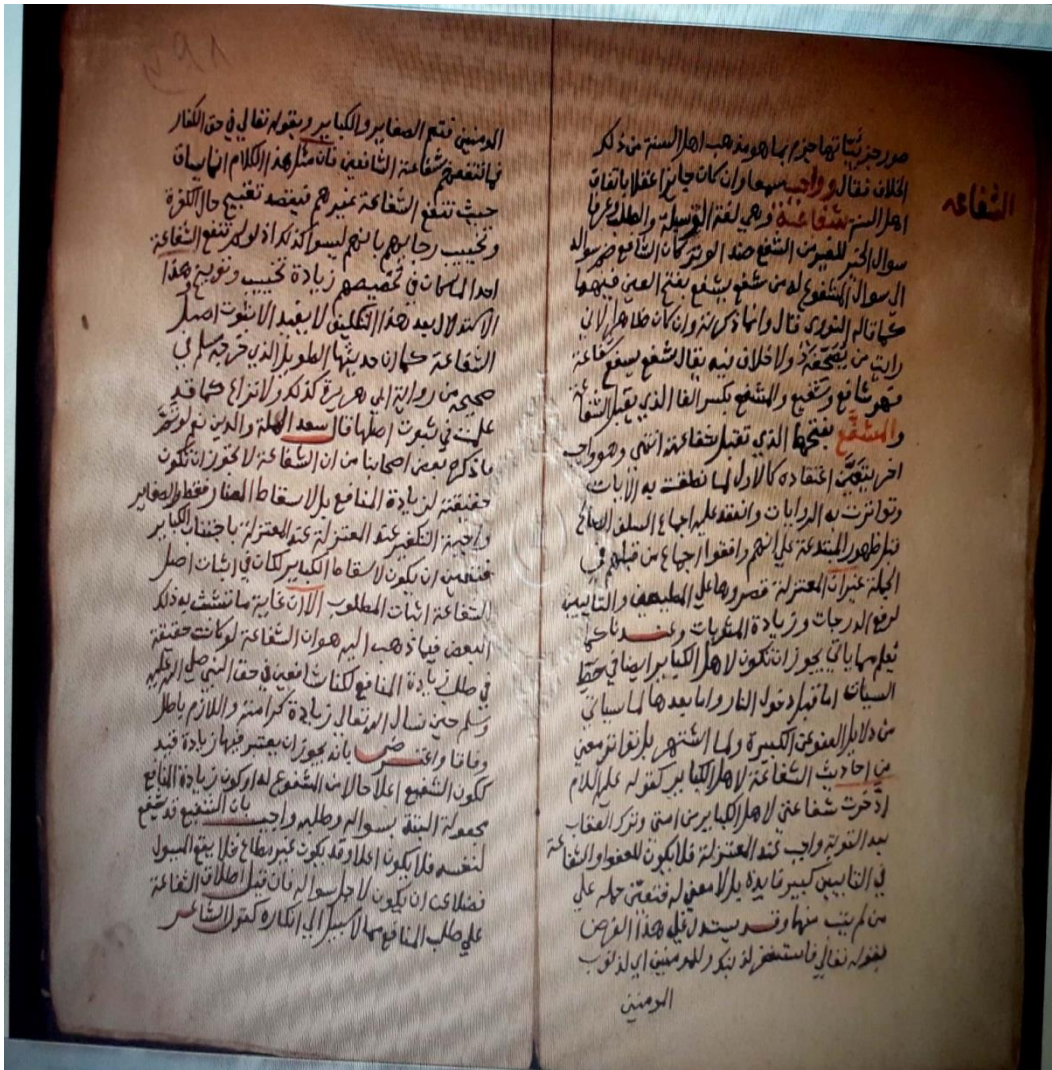 الشفاعه
صور جزئياتها جزم بما هو مذهب اهل السنة من ذلك
الخلاف فقال وواجب سمعا وان كان جايزا عقلا باتفاق
اهل السنة شفاعته وهي لغة الوسيلة والطلب وعرفا
سوال الخير للغير من الشفع ضد الوتر كان الشافع ضم سواله
الى سوال المشفوع له من شفع يشفع بفتح العين فيهما
كما قاله النووى قال وانما ذكرته وان كان ظاهرا لاني
رايت من يصحفه ولا خلاف فيه يقال شفع يشفع شفاعة
فهو شافع وشفيع والمشفع بكسر الفا الذي يقبل الشفاعة
والمشفع بفتحها الذي تقبل شفاعته انتهى وهو واجب
اخر يتعين اعتقاده كالاول لما نطقت به الايات
وتواترت به الروايات وانعقد عليه اجماع السلف الصالح
قبل ظهور المبتدعة على انهم وافقوا اجماع من قبلهم في
الجملة غير ان المعتزلة قصروها على المطيعين والتايبين
لرفع الدرجات وزيادة المثوبات وعندنا كما
يعلم مما ياتي يجوز ان تكون لاهل الكباير ايضا في حط
السيات اما قبل دخول النار واما بعدها لما سياتي
من دلايل العفو عن الكبيرة ولما اشتهر بل تواتر معنى
من احاديث الشفاعة لاهل الكباير كقوله عليه السلام
ادخرت شفاعتي لاهل الكباير من امتي وترك العقاب
بعد التوبة واجب عند المعتزلة فلا يكون للعفو والشفاعة
في التايبين كبير فايدة بل لا معنى له فتعين حمله على
من لم يتب منها وقد يستدل على هذا الغرض
بقوله تعالى فاستغفر لذنبك وللمومنين اي لذنوب
المومنين
المومنين فتعم الصغاير والكباير وبقوله تعالى في حق الكفار
فما تنفعهم شفاعة الشافعين فان مثل هذا الكلام انما يساق
حيث تنفع الشفاعة غيرهم فيقصد تقبيح حال الكفرة
وتخييب رجايهم بانهم ليسوا كذلك اذ لو لم تنفع الشفاعة
احدا لما كان في تخصيصهم زيادة تخييب وتوبيخ وهذا
الاستدلال بعد هذا التكليف لا يفيد الا ثبوت اصل
الشفاعة كما ان حديثها الطويل الذي خرجه مسلم في
صحيحه من رواية ابي هريرة كذلك ولا نزاع كما قد
علمت في ثبوت اصلها قال سعد الملة والدين نعم لو تم
ما ذكره بعض اصحابنا من ان الشفاعة لا يجوز ان تكون
حقيقة لزيادة المنافع بل لاسقاط المضار فقط والصغاير
واجبة التكفير عند المعتزلة باجتناب الكباير
فتعين ان يكون لاسقاط الكباير لكان في اثبات اصل
الشفاعة اثبات المطلوب الا ان غاية ما تشبث به ذلك
البعض فيما ذهب اليه هو ان الشفاعة لو كانت حقيقة
في طلب زيادة المنافع لكنا شافعين في حق النبي صلى الله عليه
وسلم حين نسال الله تعالى زيادة كرامته واللازم باطل
وفاقا واعترض بانه يجوز ان يعتبر فيها زيادة قيد
ككون الشفيع اعلا حالا من المشفوع له او كون زيادة المنافع
محصولة البتة بسواله وطلبه واجيب بان الشفيع قد يشفع
لنفسه فلا يكون اعلا وقد يكون غير مطاع فلا يقع المسول
فضلا عن ان يكون لاجل سواله فان قيل اطلاق الشفاعة
على طلب المنافع مما لا سبيل الى انكاره كقول الشاعر